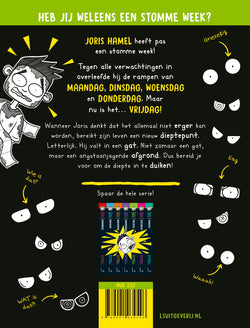 HEB JIJ WELEENS EEN STOMME WEEK?
JORIS HAMEL heeft pas
een stomme week!
Griezelig
Tegen alle verwachtingen in
overleefde hij de rampen van
MAANDAG, DINSDAG, WOENSDAG
en DONDERDAG. Maar
nu is het... VRIJDAG!
Wanneer Joris denkt dat het allemaal niet erger kan
worden, bereikt zijn leven een nieuw dieptepunt.
Letterlijk. Hij valt in een gat. Niet zomaar een gat,
maar een angstaanjagende afgrond. Dus bereid je
voor om de diepte in te duiken!
Wie is
dat?
Eng
Spaar de hele serie!
WAT is
dat?
Waaah!
NUR 282
LSUITGEVERIJ.NL